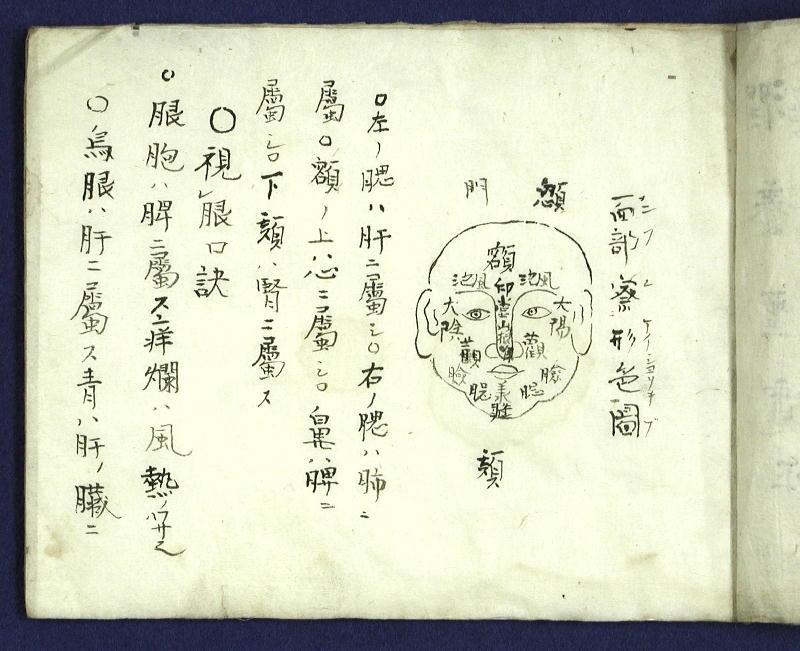 面部察形色圖
顖門
額
風池 風池
印堂
太陽 太陰
山根
觀 觀
臉 臉
腮 腮
頦
○左ノ腮ハ肝ニ屬シ○右ノ腮ハ肺ニ
屬○額ノ上ハ心ニ屬シ○鼻ハ脾ニ
屬シ○下頦ハ腎ニ屬ス
○視レ眼口訣
○眼胞ハ脾ニ屬ス痒爛ハ風熱ノワサ
○烏眼ハ肝ニ屬ス青ハ肝ノ臓ニ